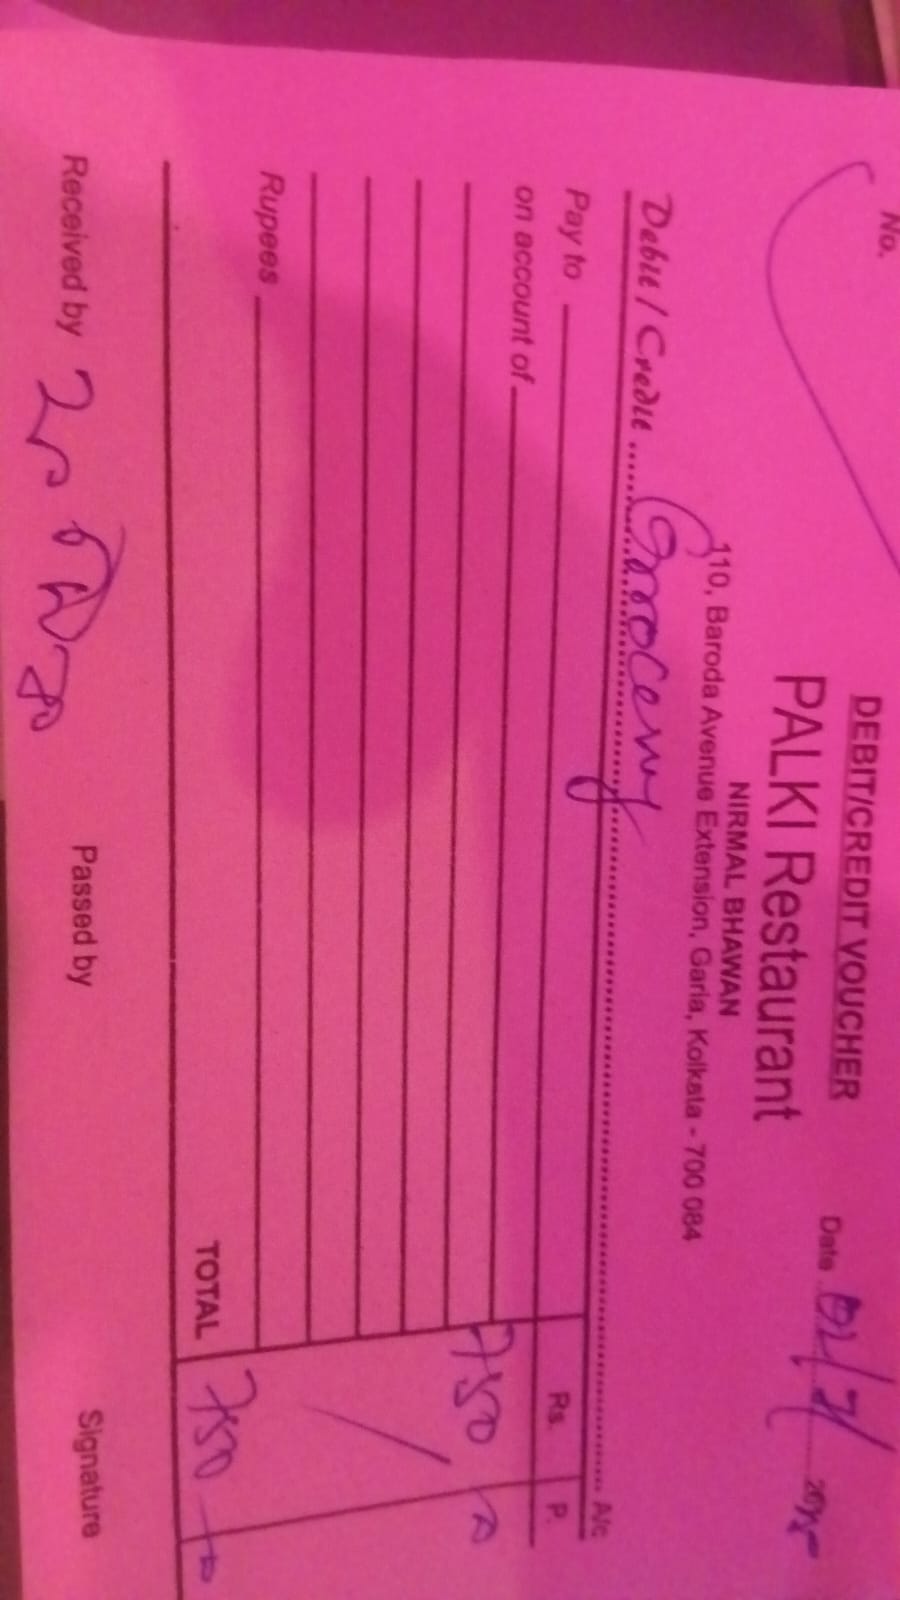 No.
DEBIT/CREDIT VOUCHER
PALKI Restaurant
NIRMAL BHAWAN
110, Baroda Avenue Extension, Garia, Kolkata - 700 084
Date
Debit / Credit Grocery A/c
Pay to Rs. P.
on account of
750
Rupees
TOTAL 750
Received by Passed by Signature